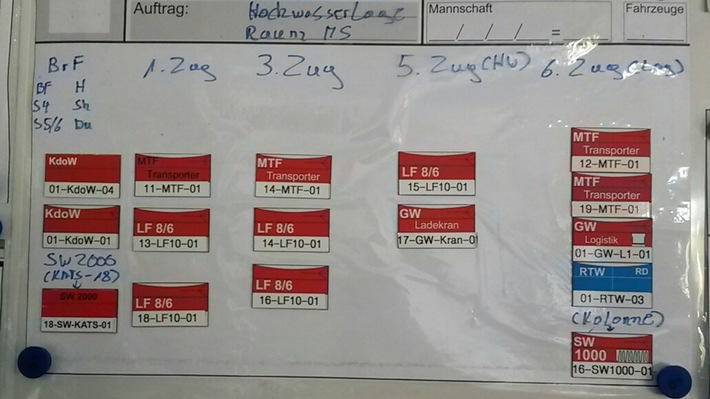 Auftrag:
Hochwasserlage
Raum MS
Mannschaft
/ / / =
Fahrzeuge
BrF
BF H
S4 Sh
S5/6 Du
1. Zug
3. Zug
5. Zug (HW)
6. Zug (Log)
KdoW
01-KdoW-04
KdoW
01-KdoW-01
SW2000
(KATS-18)
SW 2000
18-SW-KATS-01
MTF
Transporter
11-MTF-01
LF 8/6
13-LF10-01
LF 8/6
18-LF10-01
MTF
Transporter
14-MTF-01
LF 8/6
14-LF10-01
LF 8/6
16-LF10-01
LF 8/6
15-LF10-01
GW
Ladekran
17-GW-Kran-0
MTF
Transporter
12-MTF-01
MTF
Transporter
19-MTF-01
GW
Logistik
01-GW-L1-01
RTW RD
01-RTW-03
(Kolonne)
SW
1000
16-SW1000-01